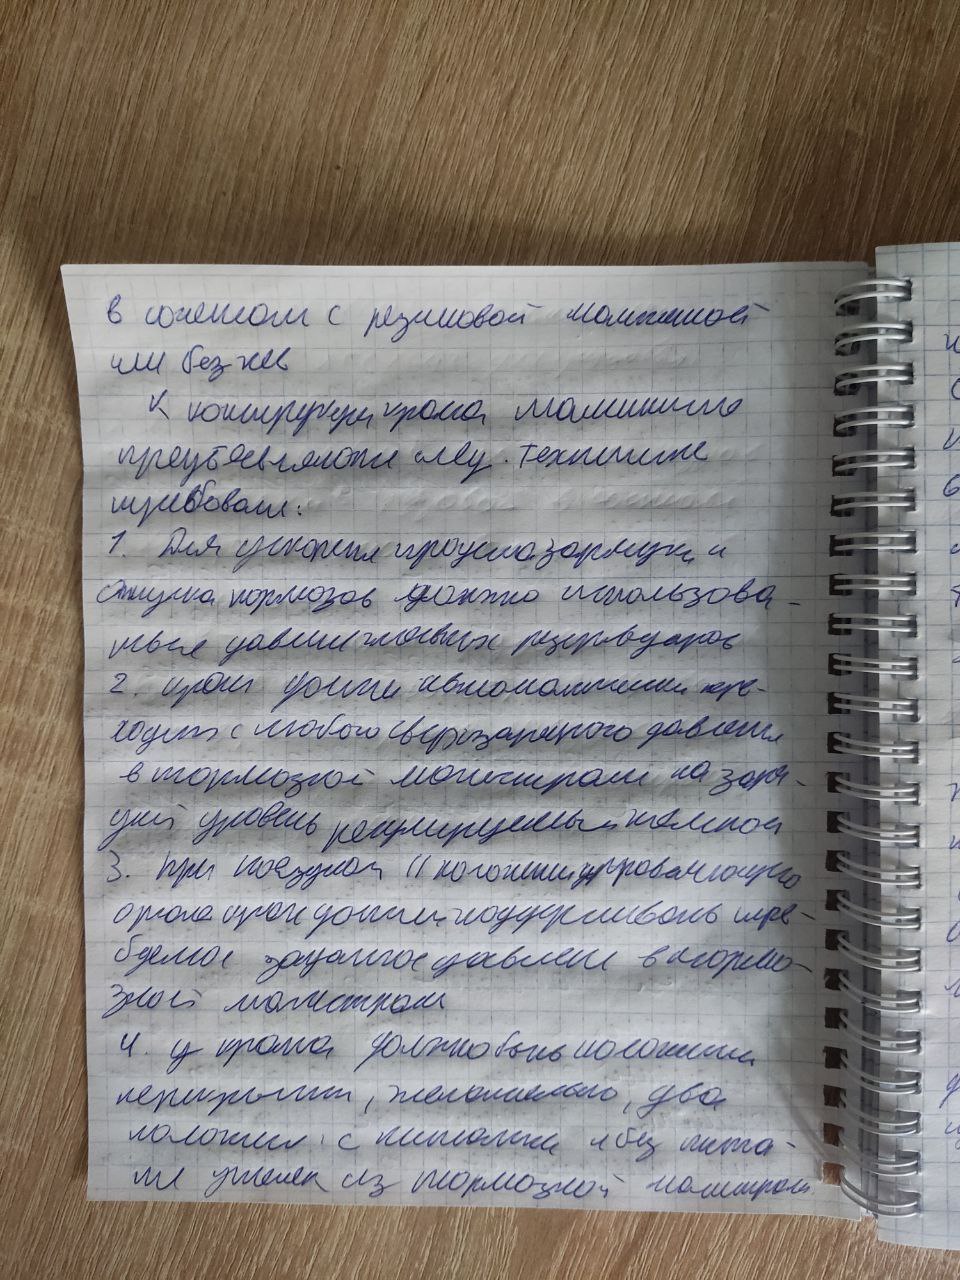 в сочетании с резиновой манжетой
или без нее
К конструкции крана машиниста
предъявляются след. технические
требован:
1. Для ускорения процесса зарядки и
отпуска тормозов должно использова-
ться давление главных резервуаров
2. кран должен автоматически пере-
ходить с любого сверхзарядного давления
в тормозной магистрали на заря-
дный уровень регулируемый темпом
3. При поездном II положении управляющего
органа кран должен поддерживать тре-
буемое заданное давление в тормо-
зной магистрали
4. у крана должно быть положение
перекрыши, желательно, два
положения: с питанием и без пита-
ние утечек из тормозной магистрали